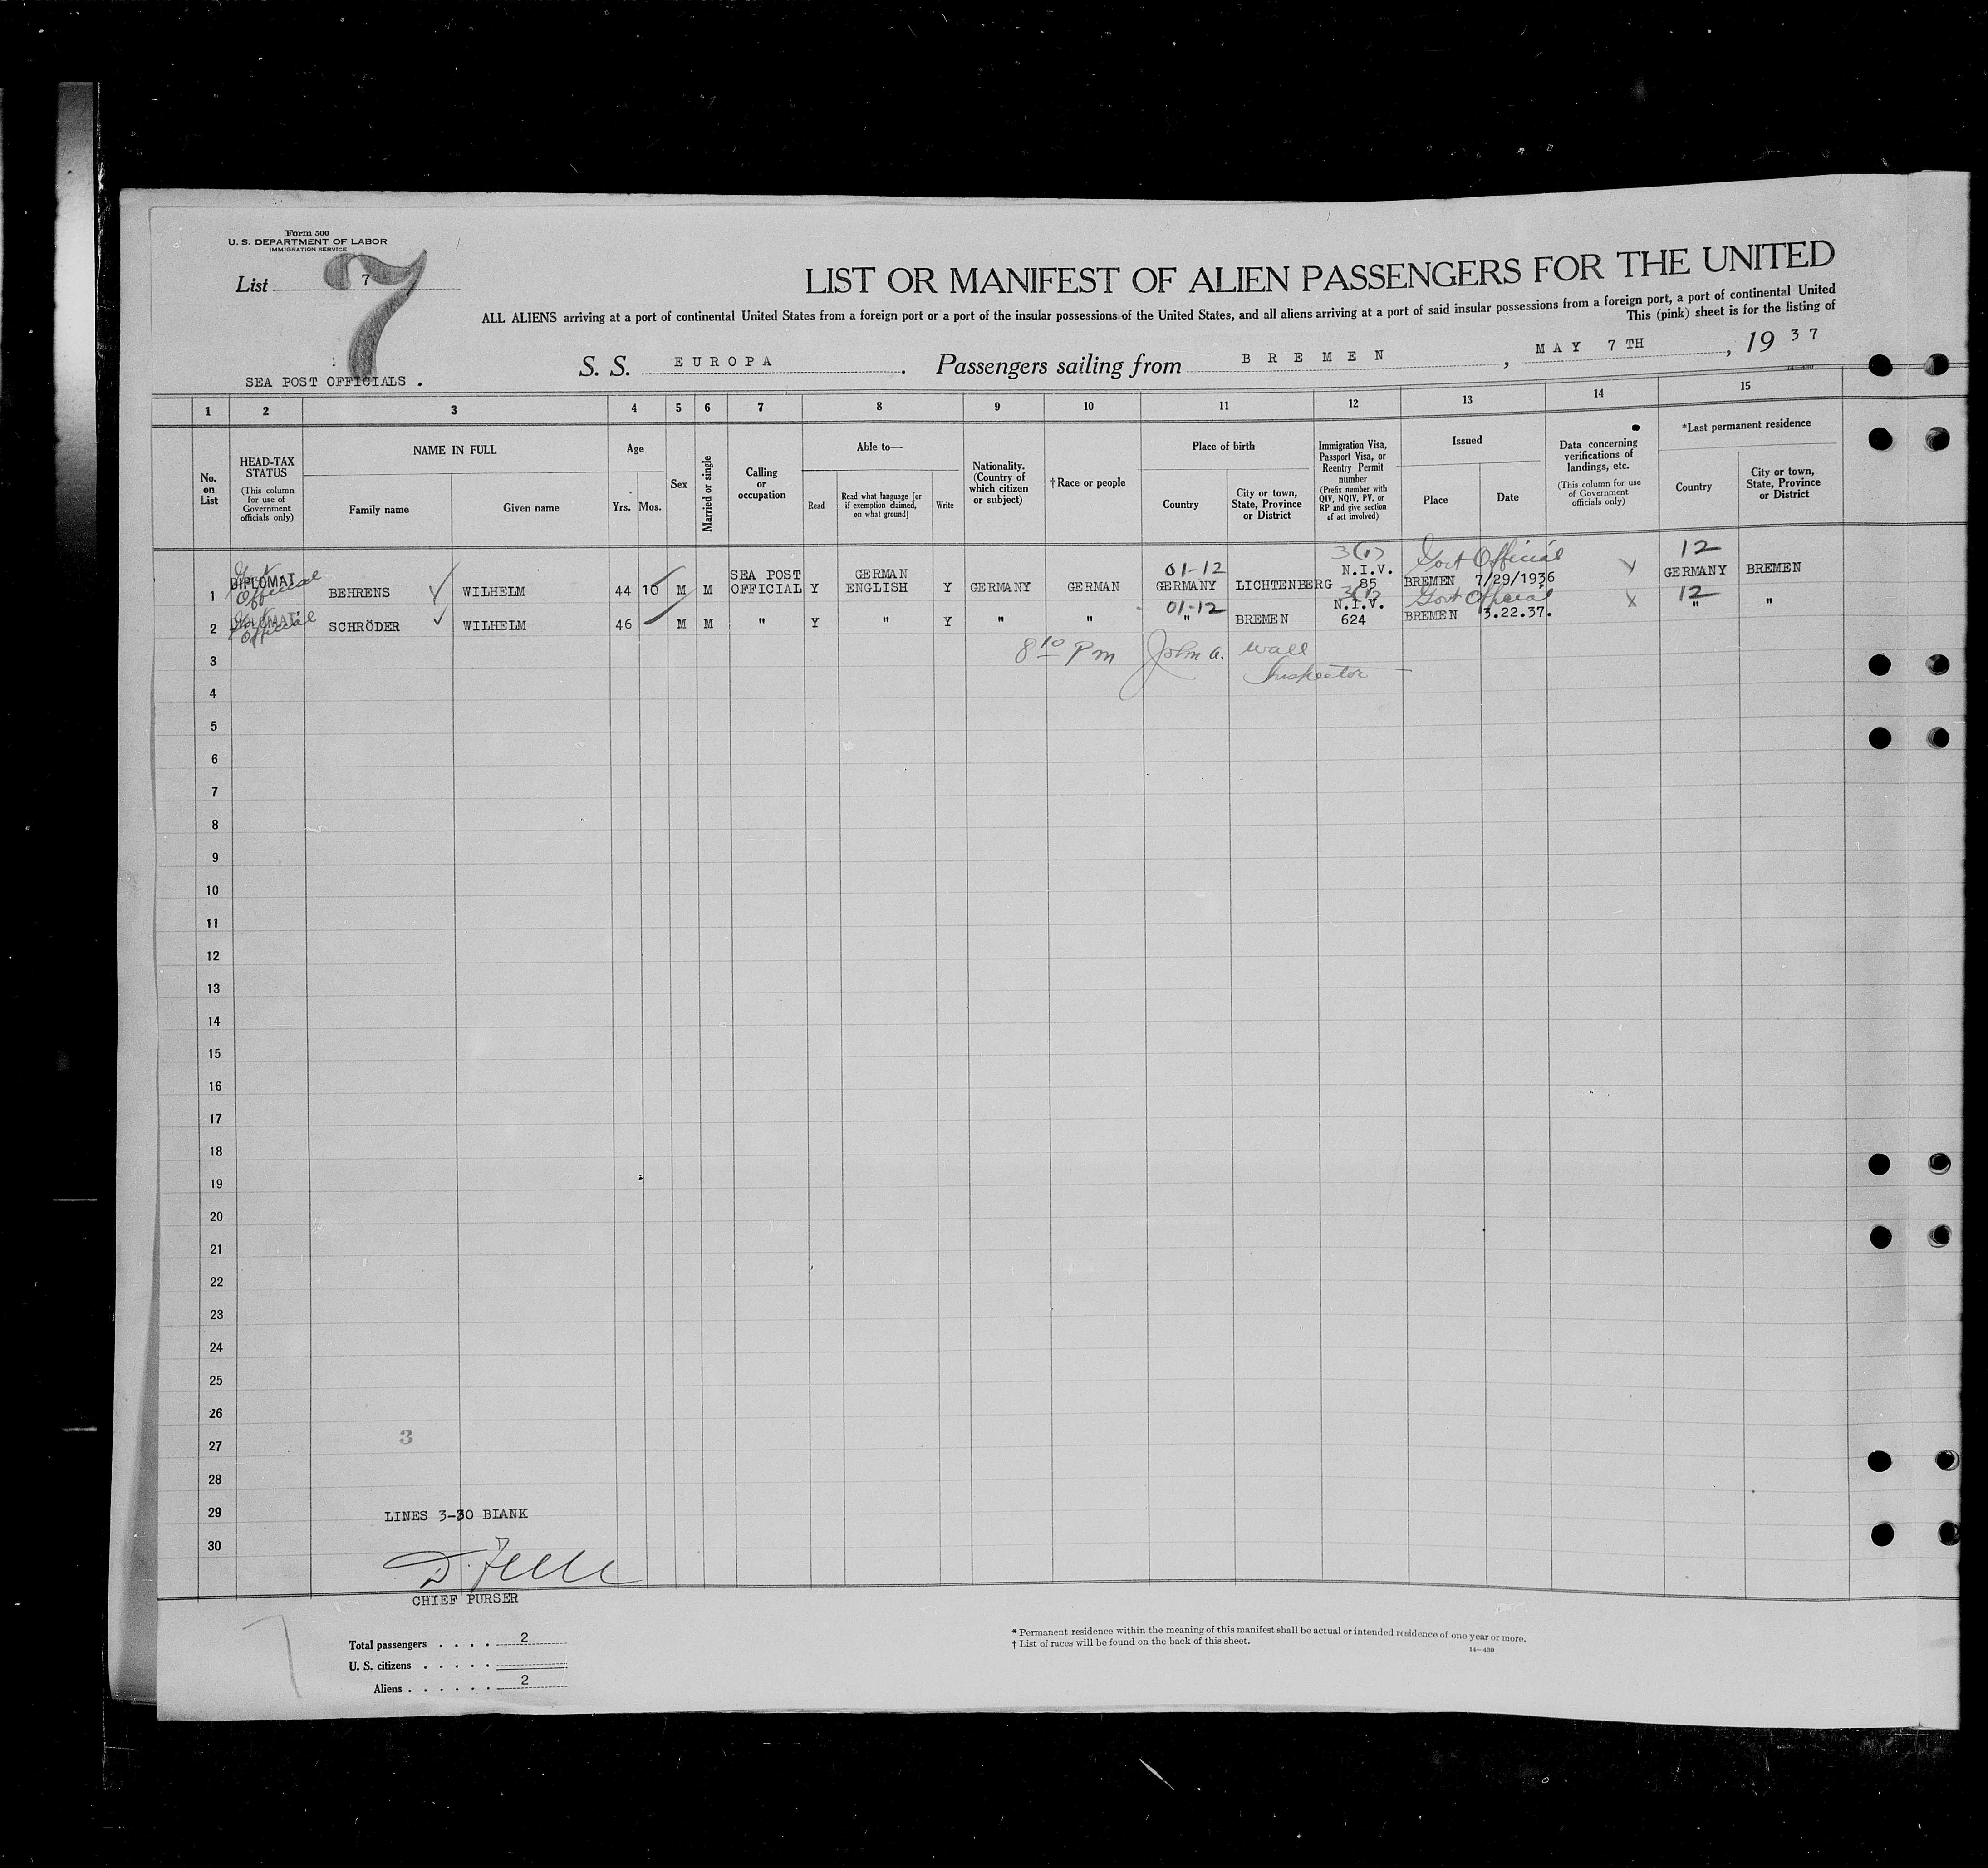 Form 500
U. S. DEPARTMENT OF LABOR
IMMIGRATION SERVICE
List 7
7
LIST OR MANIFEST OF ALIEN PASSENGERS FOR THE UNITED
ALL ALIENS arriving at a port of continental United States from a foreign port or a port of the insular possessions of the United States, and all aliens arriving at a port of said insular possessions from a foreign port, a port of continental United
This (pink) sheet is for the listing of
SEA POST OFFICIALS .
S. S. EUROPA . Passengers sailing from BREMEN , MAY 7TH , 19 37
14—430
1 2 3 4 5 6 7 8 9 10 11 12 13 14 15
No. on List
HEAD-TAX STATUS
(This column for use of Government officials only)
NAME IN FULL
Family name
Given name
Age
Yrs. Mos.
Sex
Married or single
Calling or occupation
Able to—
Read
Read what language [or if exemption claimed, on what ground]
Write
Nationality. (Country of which citizen or subject)
†Race or people
Place of birth
Country
City or town, State, Province or District
Immigration Visa, Passport Visa, or Reentry Permit number
(Prefix number with QIV, NQIV, PV, or RP and give section of act involved)
Issued
Place
Date
Data concerning verifications of landings, etc.
(This column for use of Government officials only)
*Last permanent residence
Country
City or town, State, Province or District
3(1) Govt Official 12
DIPLOMAT Govt Official
SEA POST GERMAN 01-12 N.I.V. GERMANY BREMEN
1 BEHRENS WILHELM 44 10 M M OFFICIAL Y ENGLISH Y GERMANY GERMAN GERMANY LICHTENBERG 85 BREMEN 7/29/1936
3(1) Govt Official 12
DIPLOMAT Govt Official
01-12 N.I.V. " "
2 SCHRÖDER WILHELM 46 M M " Y " Y " " " BREMEN 624 BREMEN 3.22.37.
8 10 Pm John A. Wall
Inspector
3
4
5
6
7
8
9
10
11
12
13
14
15
16
17
18
19
20
21
22
23
24
25
26
3
27
28
29 LINES 3-30 BLANK
30
CHIEF PURSER
7
Total passengers . . . . . 2
U. S. citizens . . . . .
Aliens . . . . . . 2
* Permanent residence within the meaning of this manifest shall be actual or intended residence of one year or more.
† List of races will be found on the back of this sheet.
14—430